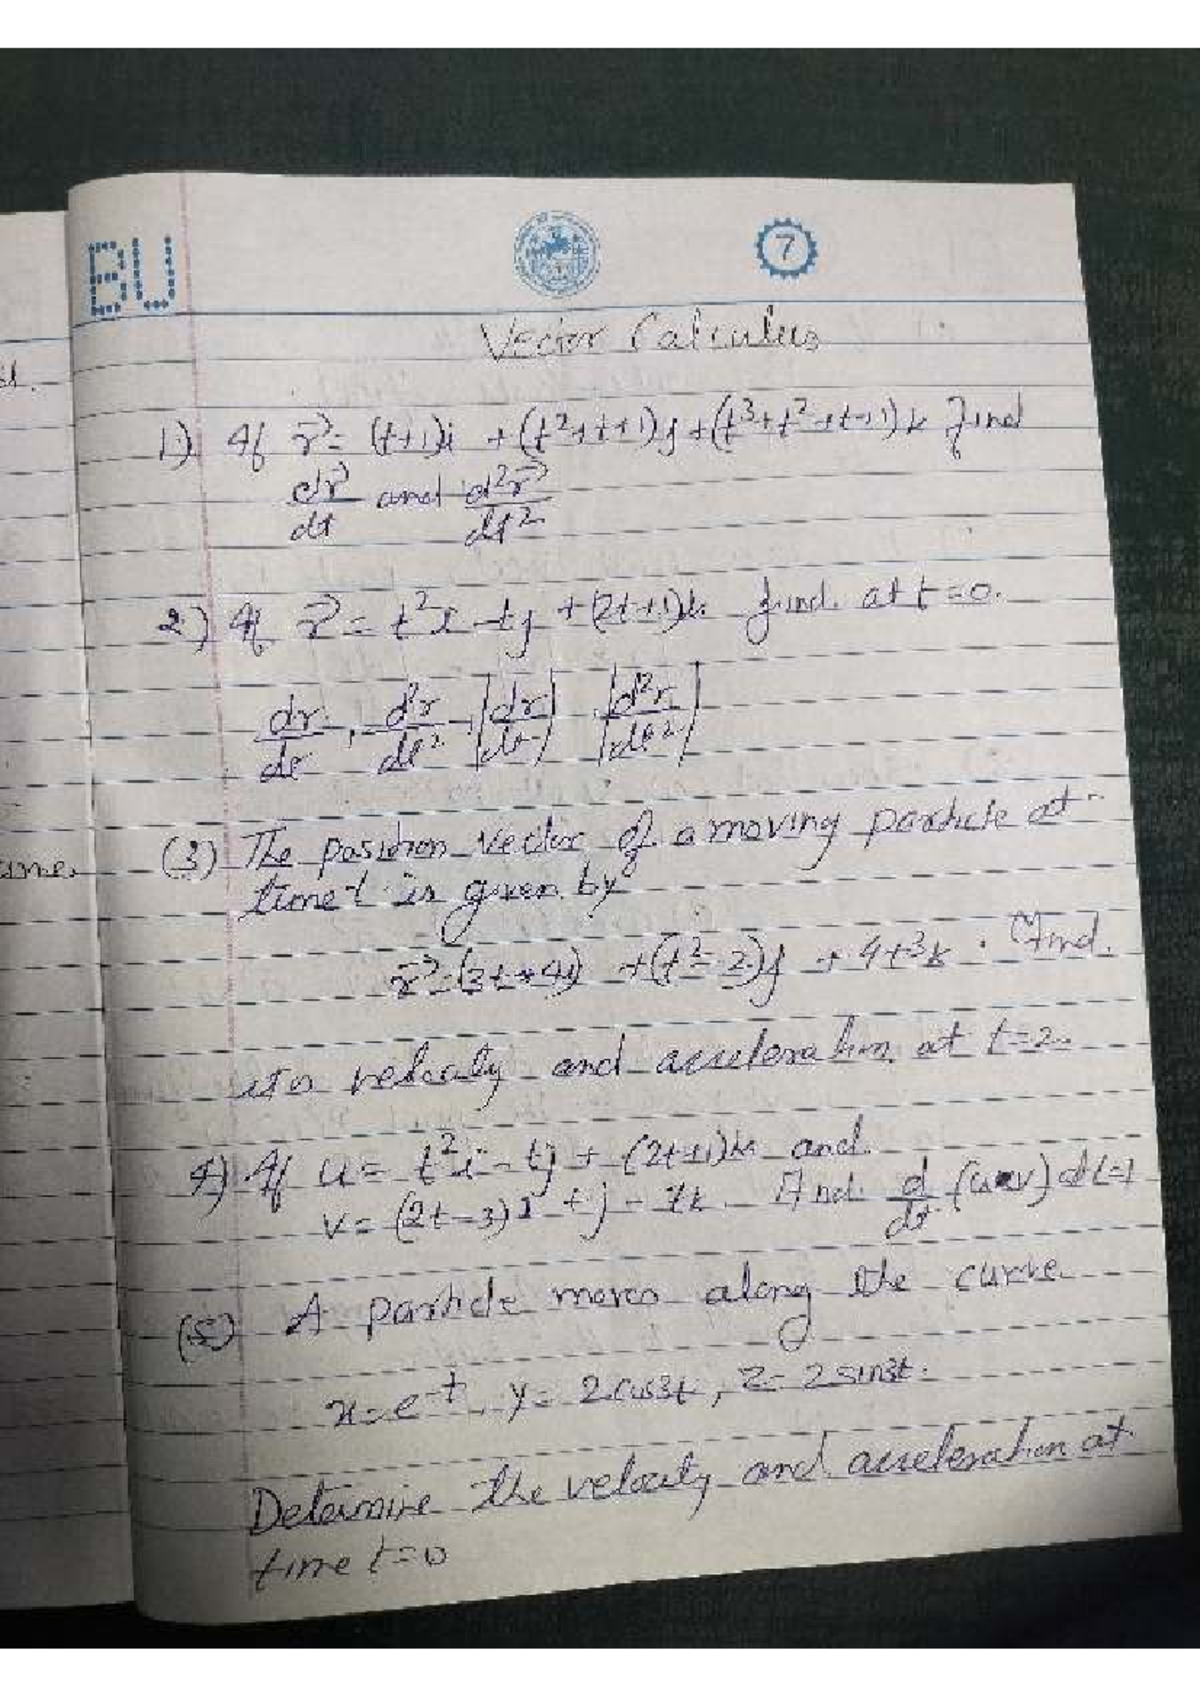 BU
7
Vector Calculus
1) If r⃗ = (t+1)i + (t²+t+1)j + (t³+t²+t+1)k find
dr⃗/dt and d²r⃗/dt²
2) If r⃗ = t²i - tj + (2t+1)k find at t=0.
dr/dt, d²r/dt², |dr/dt| |d²r/dt²|
(3) The position vector of a moving particle at
time t is given by
r⃗ = (3t+4i) + (t²-2)j + 4t³k. Find
its velocity and acceleration at t=2.
4) If u = t²i - tj + (2t+1)k and
v = (2t-3)i + j - tk. Find d/dt (u·v) at t=1
(5) A particle moves along the curve
x=e^-t, y=2cos3t, z=2sin3t.
Determine the velocity and acceleration at
time t=0